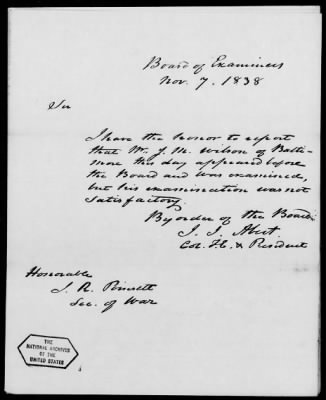 Board of Examiners
Nov. 7, 1838
Sir
I have the honor to report
that Mr. J. M. Wilson of Balti-
more this day appeared before
the Board and was examined,
but his examination was not
satisfactory.
By order of the Board
J. J. Abert
Col. T. E. & President
Honorable
J. R. Poinsett
Sec. of War
THE
NATIONAL ARCHIVES
OF THE
UNITED STATES